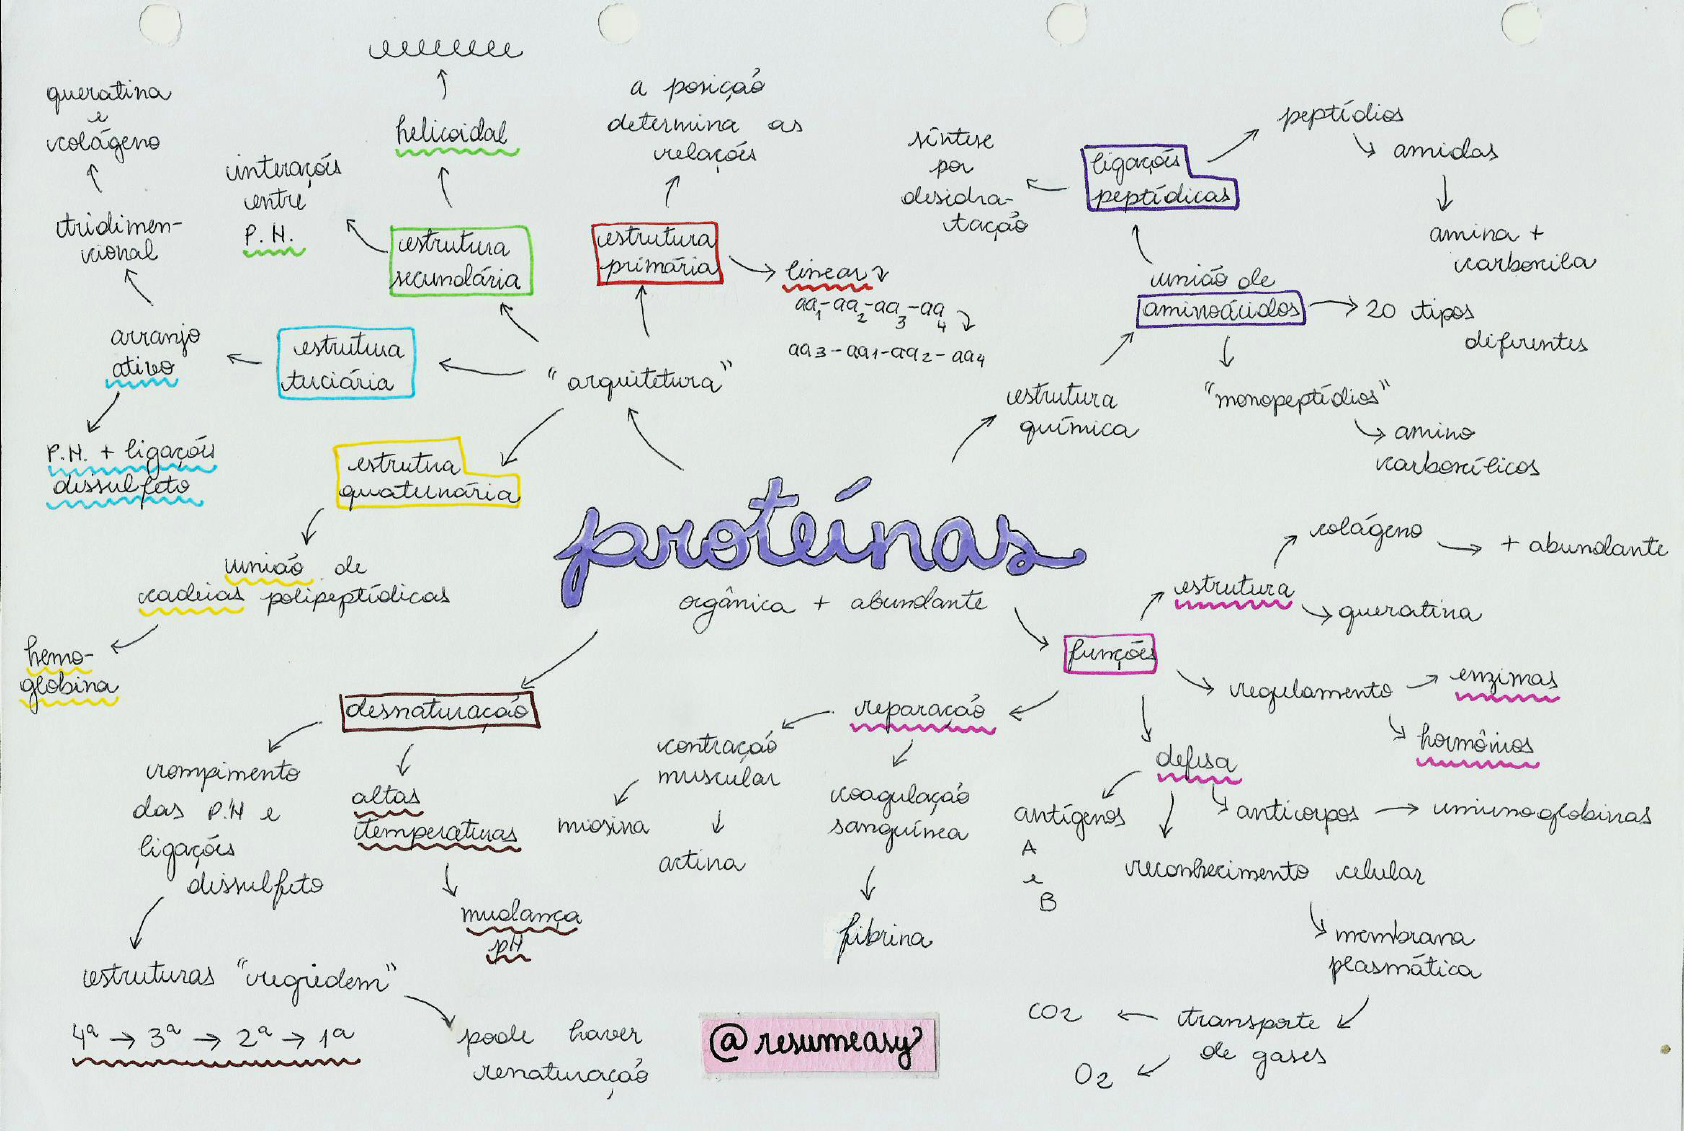 queratina
e
colágeno
tridimen-
cional
arranjo
ativo
P.H. + ligações
dissulfeto
interações
entre
P.H.
helicoidal
estrutura
secundária
estrutura
terciária
a posição
determina as
relações
estrutura
primária
linear
aa1-aa2-aa3-aa4
aa3-aa1-aa2-aa4
"arquitetura"
estrutura
quaternária
união de
cadeias polipeptídicas
hemo-
globina
síntese
por
desidra-
tação
ligações
peptídicas
peptídios
amidas
amina +
carboxila
união de
aminoácidos
20 tipos
diferentes
"monopeptídios"
amino
carboxílicos
estrutura
química
proteínas
orgânica + abundante
desnaturação
rompimento
das P.H e
ligações
dissulfeto
altas
temperaturas
mudança
pH
estruturas "regridem"
4ª → 3ª → 2ª → 1ª
pode haver
renaturação
funções
estrutura
colágeno
+ abundante
queratina
regulamento
enzimas
hormônios
reparação
contração
muscular
miosina
actina
coagulação
sanguínea
fibrina
defesa
antígenos
A
e
B
anticorpos
imunoglobinas
reconhecimento celular
membrana
plasmática
transporte
de gases
CO2
O2
@resumeasy